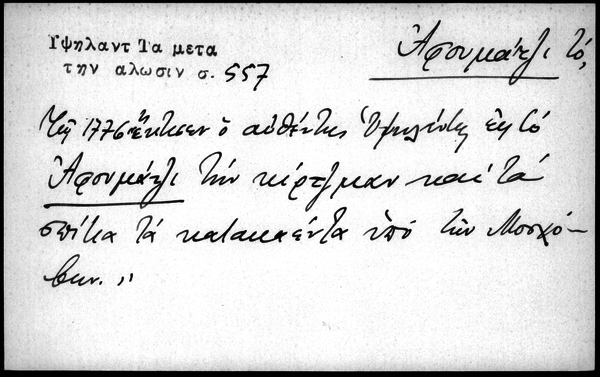 Υψηλαντ Τα μετα
την αλωσιν σ. 557
Ἀφουμάτζι τό,
Τῷ 1776 ἔκτισεν ὁ αὐθέντης Ὑψηλάντης εἰς τό
Ἀφουμάτζι τήν κέρτζμαν καί τά
σπίτια τά κατακαέντα ὑπό τῶν Μοσχό-
βων.,,